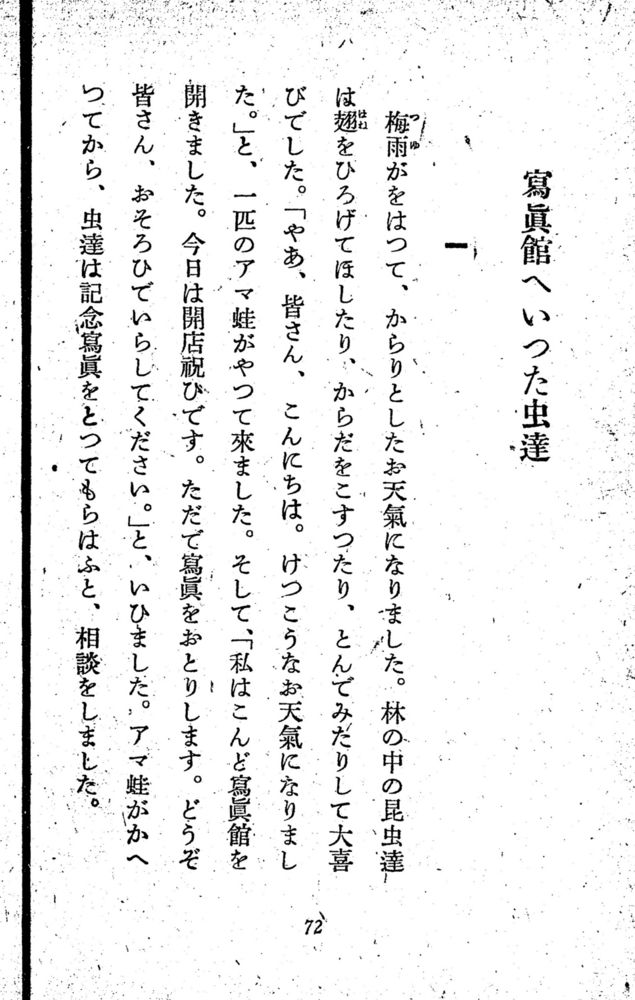 寫眞館へいつた虫達
一
梅雨がをはつて、からりとしたお天氣になりました。林の中の昆虫達
は翅をひろげてほしたり、からだをこすつたり、とんでみたりして大喜
びでした。「やあ、皆さん、こんにちは。けつこうなお天氣になりまし
た。」と、一匹のアマ蛙がやつて來ました。そして、「私はこんど寫眞館を
開きました。今日は開店祝ひです。ただで寫眞をおとりします。どうぞ
皆さん、おそろひでいらしてください。」と、いひました。アマ蛙がかへ
つてから、虫達は記念寫眞をとつてもらはふと、相談をしました。
72